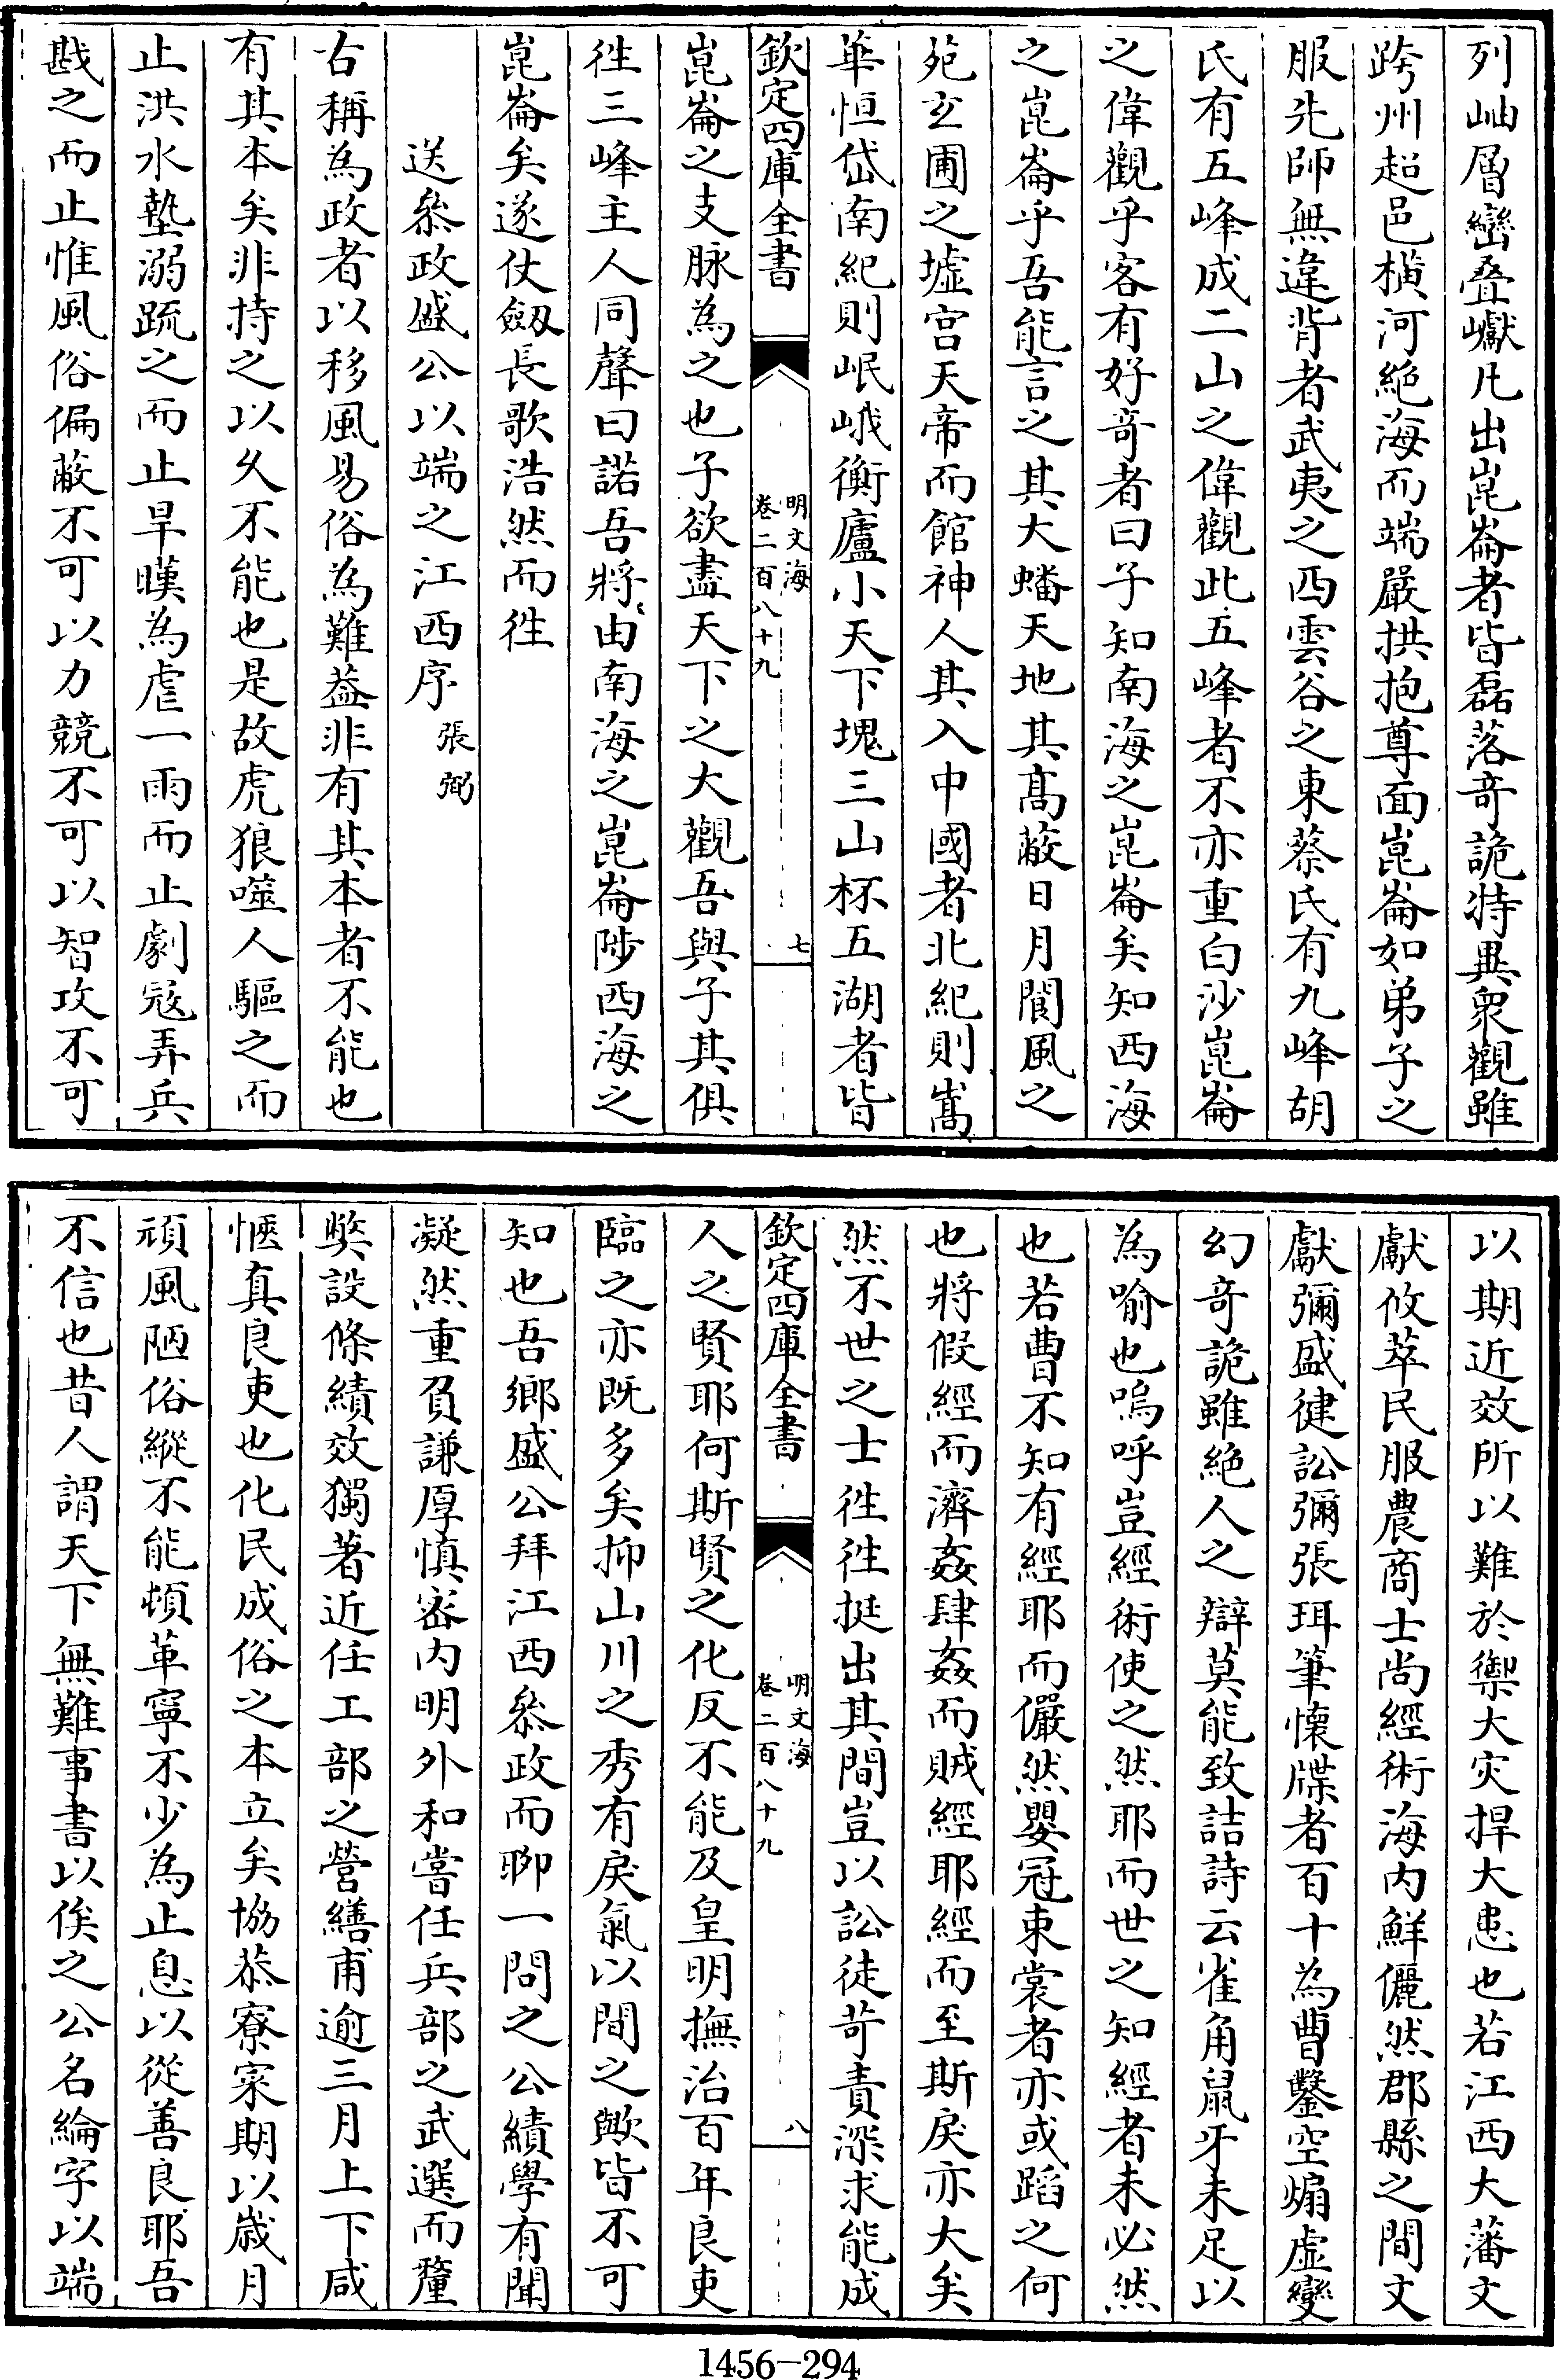 列岫層巒叠巘凡出崑崙者皆磊落奇詭特異衆觀雖
跨州超邑橫河絶海而端嚴拱抱尊面崑崙如弟子之
服先師無違背者武夷之西雲谷之東蔡氏有九峰胡
氏有五峰成二山之偉觀此五峰者不亦重白沙崑崙
之偉觀乎客有好奇者曰子知南海之崑崙矣知西海
之崑崙乎吾能言之其大蟠天地其髙蔽日月閬風之
苑玄圃之墟宫天帝而館神人其入中國者北紀則嵩
華恒岱南紀則岷峨衡廬小天下塊三山杯五湖者皆
欽定四庫全書
明文海
卷二百八十九
七
崑崙之支脉為之也子欲盡天下之大觀吾與子其俱
徃三峰主人同聲曰諾吾將由南海之崑崙陟西海之
崑崙矣遂仗劔長歌浩然而徃
送叅政盛公以端之江西序
張弼
古稱為政者以移風易俗為難葢非有其本者不能也
有其本矣非持之以久不能也是故虎狼噬人驅之而
止洪水墊溺疏之而止旱暵為虐一雨而止劇寇弄兵
戡之而止惟風俗偏蔽不可以力競不可以智攻不可
以期近效所以難於禦大灾捍大患也若江西大藩文
獻攸萃民服農商士尚經術海内鮮儷然郡縣之間文
獻彌盛健訟彌張珥筆懐牒者百十為曹鑿空煽虚變
幻奇詭雖絶人之辯莫能致詰詩云雀角䑕牙未足以
為喻也嗚呼豈經術使之然耶而世之知經者未必然
也若曹不知有經耶而儼然嬰冠束裳者亦或蹈之何
也將假經而濟姦肆姦而賊經耶經而至斯戾亦大矣
然不世之士徃徃挺出其間豈以訟徒苛責深求能成
欽定四庫全書
明文海
卷二百八十九
八
人之賢耶何斯賢之化反不能及皇明撫治百年良吏
臨之亦既多矣抑山川之秀有戾氣以間之歟皆不可
知也吾鄉盛公拜江西叅政而聊一問之公績學有聞
凝然重負謙厚慎宻内明外和嘗任兵部之武選而釐
獘設條績效獨著近任工部之營繕甫逾三月上下咸
愜真良吏也化民成俗之本立矣協恭寮寀期以嵗月
頑風陋俗縱不能頓革寧不少為止息以從善良耶吾
不信也昔人謂天下無難事書以俟之公名綸字以端
1456-294